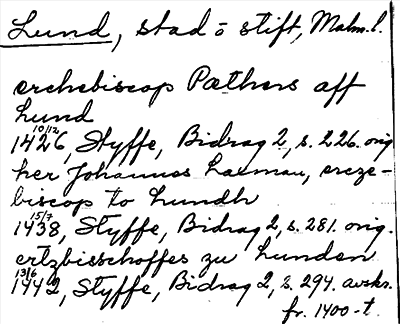 Lund, stad o stift, Malm.l.
erchebiscop Pæthers aff
Lund
10/12 1426, Styffe, Bidrag 2, s. 226. orig
her Johannes Laxman, ercze-
biscop to Lundh
15/7 1438, Styffe, Bidrag 2, s. 281. orig.
ertzbisschoffes zu Lunden
13/6 1442, Styffe, Bidrag 2, s. 294. avskr.
fr. 1400-t.